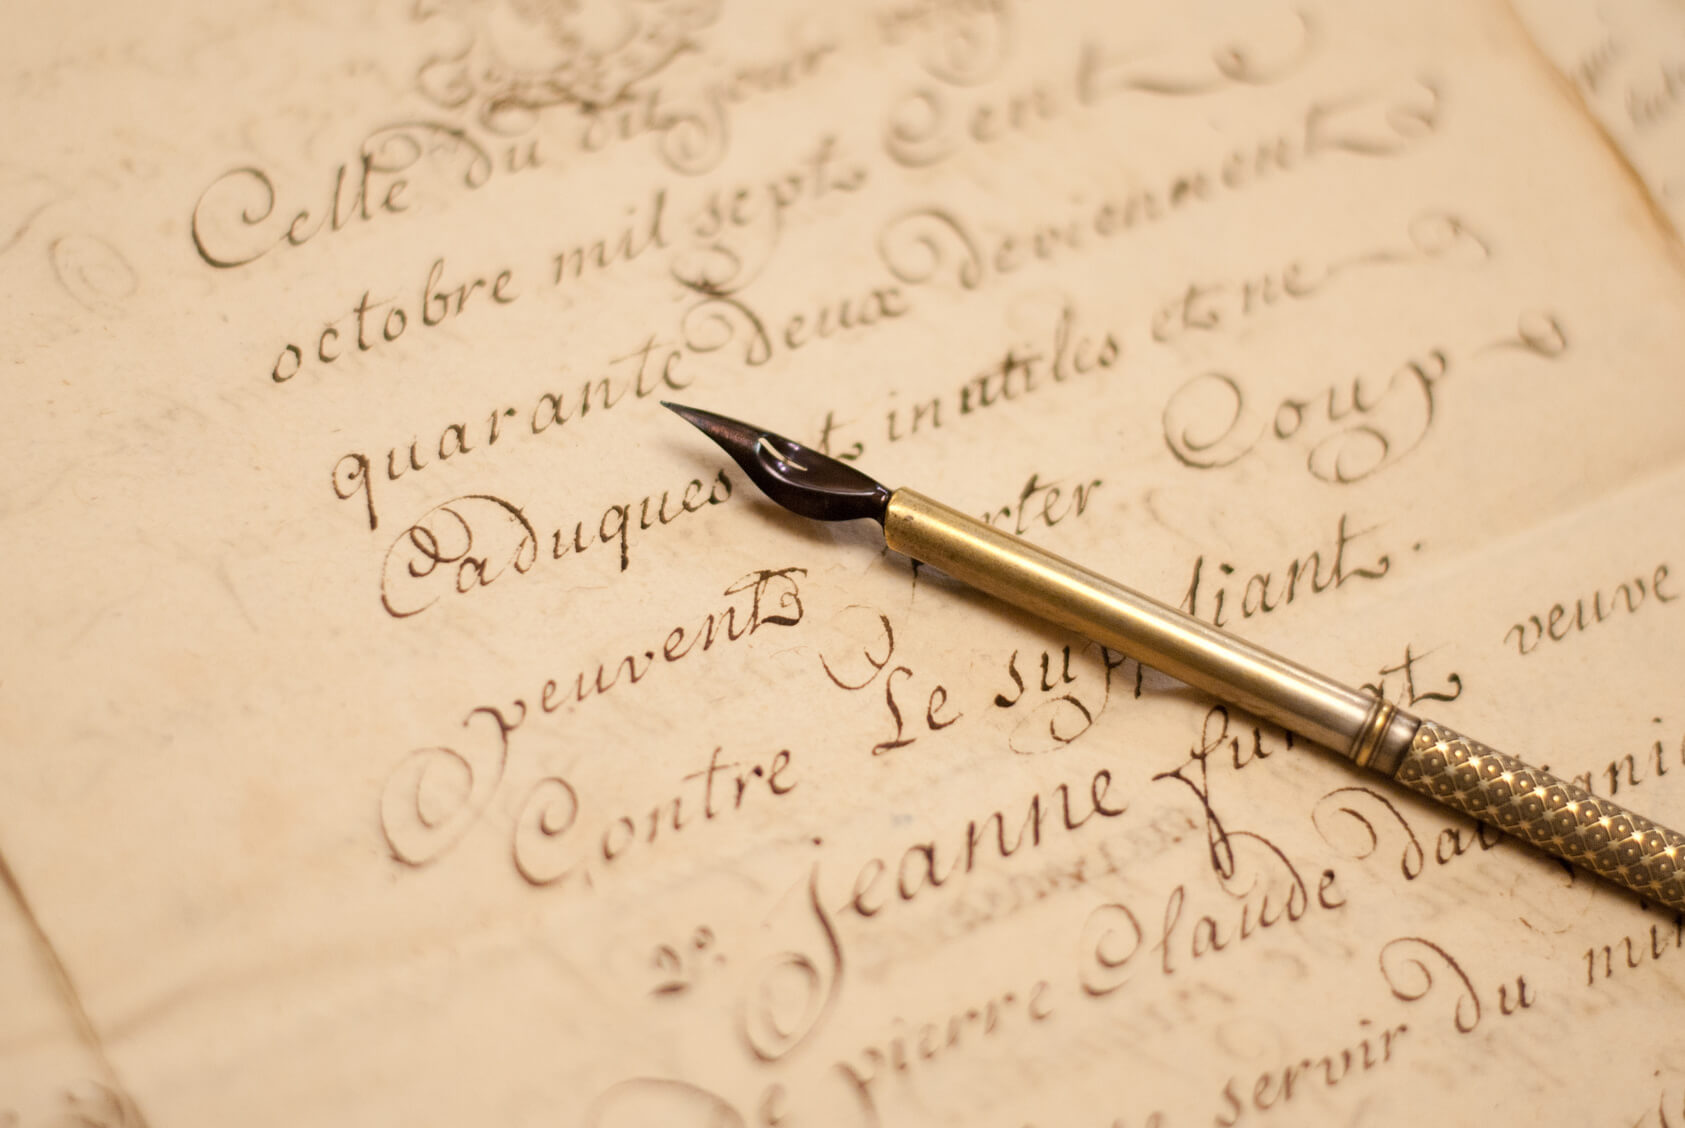 Celle du dit jour
octobre mil sept Cent
quarante deux deviennent
Caduques et inutiles et ne
peuvent porter Coup
Contre Le suppliant.
2º Jeanne furgat veuve
De pierre Claude
servir du